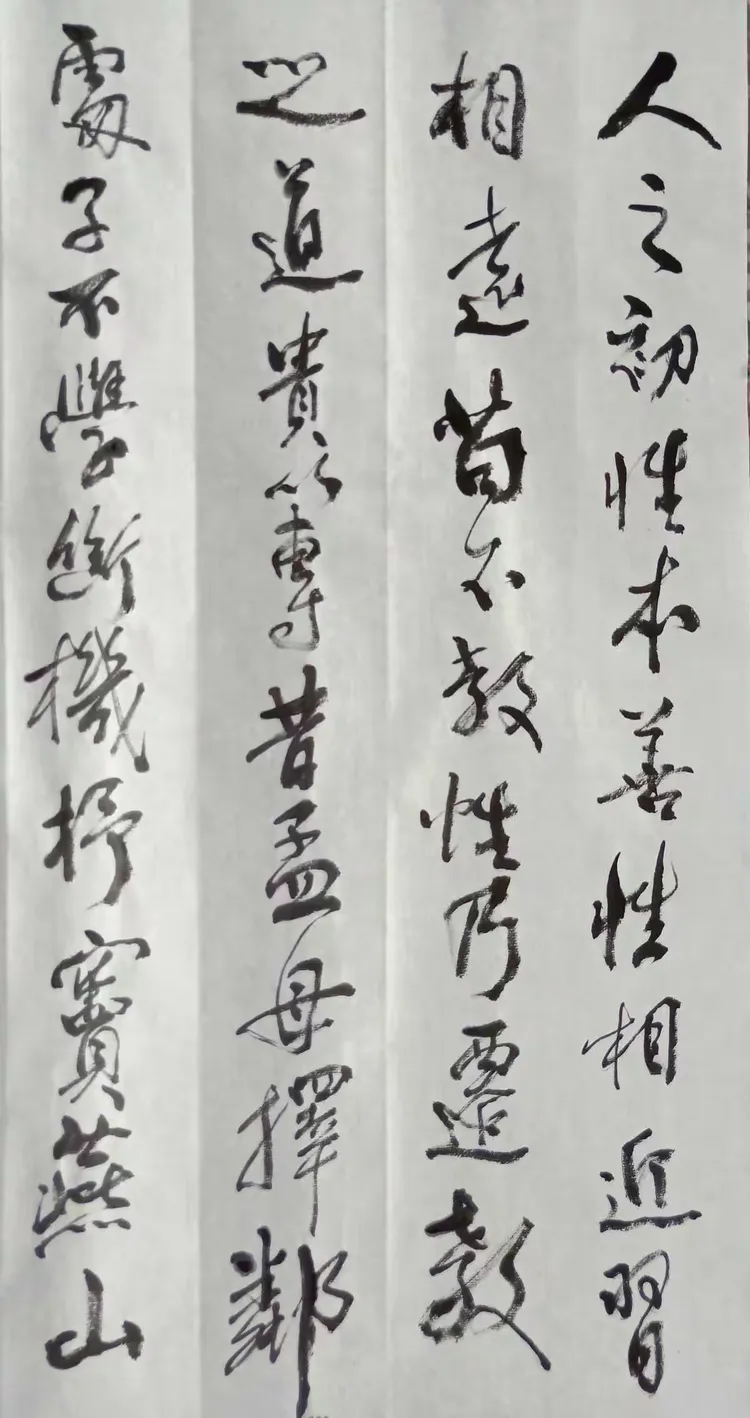 人之初性本善性相近習
相遠苟不教性乃遷教
之道貴以專昔孟母擇鄰
處子不學斷機杼竇燕山